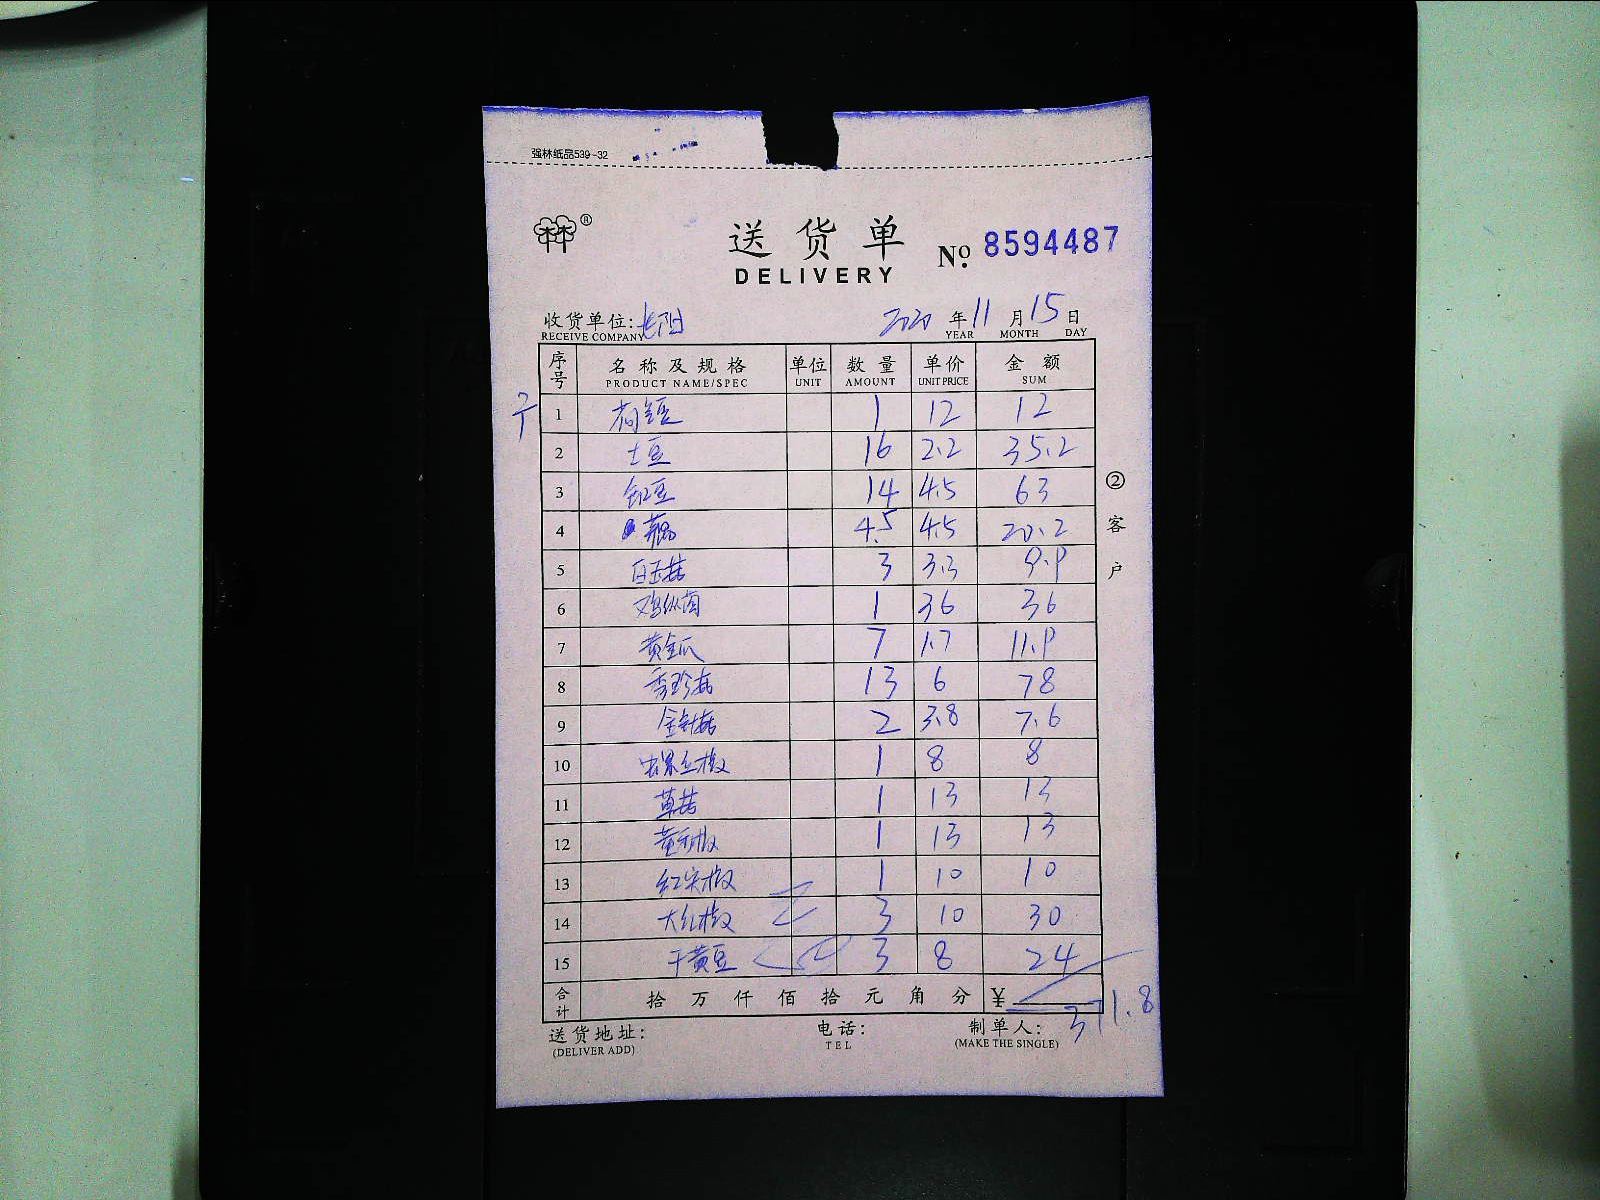 强林纸品539-32
®
送货单
DELIVERY
No. 8594487
收货单位: 长阳 2020 年 11 月 15 日
RECEIVE COMPANY YEAR MONTH DAY
序号 名称及规格 单位 数量 单价 金额
PRODUCT NAME/SPEC UNIT AMOUNT UNIT PRICE SUM
1 1 12 12
2 土豆 16 2.2 35.2
3 14 4.5 63
4 4.5 4.5 20.2
5 白玉菇 3 3.3 9.9
6 鸡纵菌 1 36 36
7 黄金瓜 7 1.7 11.9
8 秀珍菇 13 6 78
9 金针菇 2 3.8 7.6
10 螺丝椒 1 8 8
11 草菇 1 13 13
12 1 13 13
13 红尖椒 1 10 10
14 大红椒 3 10 30
15 干黄豆 3 8 24
合计 拾万仟佰拾元角分 ¥ 371.8
②客户
送货地址: 电话: 制单人:
(DELIVER ADD) TEL (MAKE THE SINGLE)